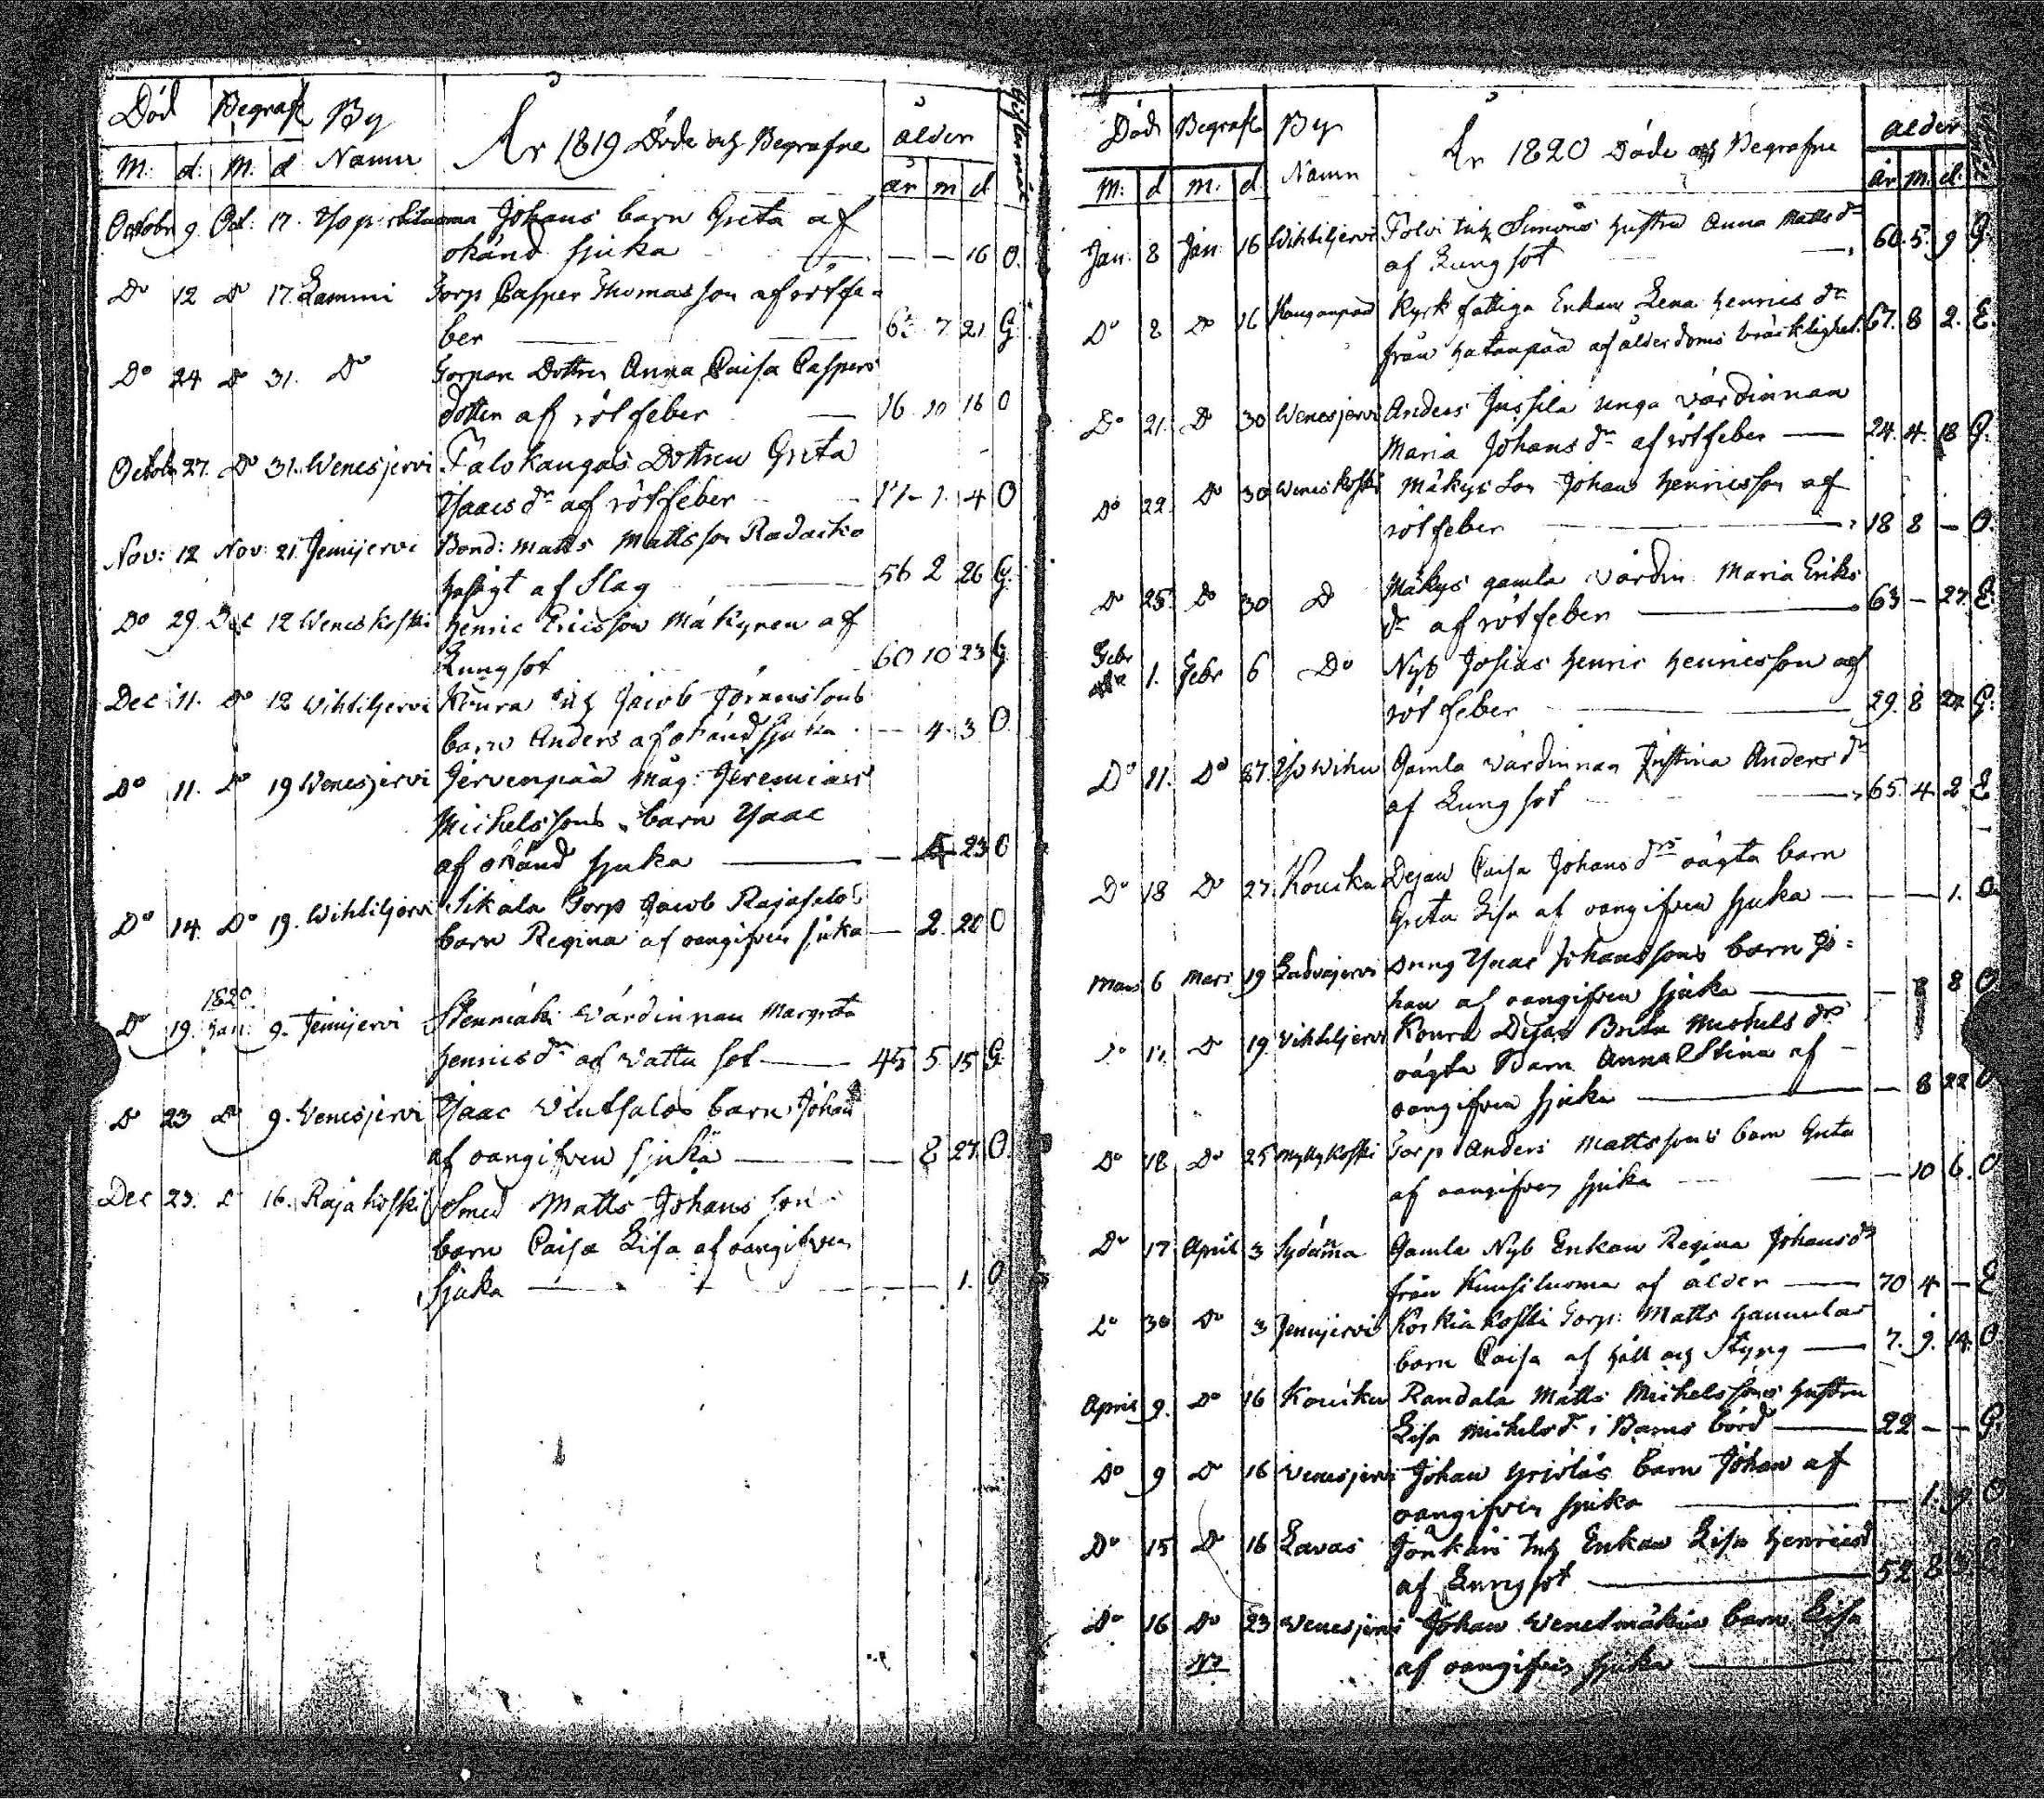 Död Begrafn By År 1819 Döde och Begrafne ålder
M: d: M: d Namn år m d
Octobr 9. Oct: 17. Johans barn Greta af
okänd sjuka — — 16 O.
Do 12 Do 17. Lammi Torp Casper Thomasson af rötfe-
ber 7 21 G.
Do 24 Do 31. Do Torpare Dottren Anna Caisa Caspers
dotter af rötfeber — 16. 10 16 O
Octobr 27. Do 31. Wenesjervi Talokangas Dottren Greta
Isaacs dr af rötfeber 17 - 1. 4 O
Nov: 12 Nov: 21. Jemijervi Bond: Matts Mattsson
af Slag 56 2 26 G.
Do 29. Dec 12 Weneskoski Henric Ericsson Mäkynen af
Lungsot 60 10 23 G.
Dec 11. Do 12 Wihtiljervi Koura Inh Jacob Göranssons
barn Anders af okänd sjuka — 4. 3 O.
Do 11. Do 19 Wenesjervi Jervenpää måg: Jeremias
Michelssons barn Isaac
af okänd sjuka — — 4 23 O
Do 14. Do 19. Wihtiljervi Sikala Torp Jacob Rajasalos
barn Regina af oangifven sjuka — 2. 28 O
1820.
Do 19. Jan: 9. Jemijervi Stenmäki Värdinnan Margreta
Henrics dr af Vattu sot — 45 5 15 G.
Do 23 Do 9. Venesjervi Isaac Vintsalos barn Johan
af oangifven sjuka — — 8 27. O.
Dec 23. Do 16. Rajakoski Smed Matts Johansson
barn Caisa Lisa af oangifven
sjuka — — — 1. O
Död Begrafn By År 1820 Döde och Begrafne ålder
M: d M. d Namn År M. d.
Jan: 8 Jan: 16 Wihtiljervi Tolvi Inh Simons hustru Anna Matts dr
af Lungsot — 60. 5. 9 G.
Do 8 Do 16 Kyrk fattiga Enkan Lena Henrics dr
från Hatanpää af ålderdoms bräcklighet. 67. 8 2. E.
Do 21. Do 30 Wenesjervi Anders Jussila unga värdinnan
Maria Johans dr af rötfeber — 24. 4. 18 G.
Do 22. Do 30 Weneskoski Mäkys Son Johan Henricsson af
rötfeber — 18 8 — O.
Do 25. Do 30 Do Mäkys gamla värdin Maria Eriks
dr af rötfeber — 63 — 27. E.
Febr 1. Febr 6 Do Nyb Josias Henric Henricsson af
rötfeber — 29. 8 24 G.
Do 11. Do 27. Gamla värdinnan Justina Anders dr
af Lungsot — 65. 4. 2 E
Do 18 Do 27. Kouiku Dejan Caisa Johans drs oägta barn
Greta Lisa af oangifven sjuka — — — 1. O
Mars 6 Mars 19 Ladvajervi Isaac Johanssons barn Jo-
han af oangifven sjuka — — 8 8 O
Do 12 Do 19. Vihtiljervi Koura Dejas Brita Michels drs
oägta Barn Anna Stina af
oangifven sjuka — — 8 22 O
Do 18 Do 25 Myllykoski Torp Anders Mattssons barn Greta
af oangifven sjuka — — 10 6. O
Do 17 April 3 Sydänma Gamla Nyb Enkan Regina Johans dr
från Kuusiluoma af ålder — 70 4 — E
Do 30 Do 3 Jemijervi Koskia Koski Torp: Matts
barn Caisa af håll och Styng — 7. 9. 14. O
April 9. Do 16 Kouiku Randala Matts Michelssons hustru
Lisa Michels dr i Barns börd — 22 — — G.
Do 9 Do 16 Venesjervi Johan Yrjölas barn Johan af
oangifven sjuka — — 1. O
Do 15 Do 16 Lavas Inh Enkan Lisa Henrics
af Lungsot — 52 8
Do 16 Do 23 Venesjervi Johan barn Lisa
af oangifven sjuka —